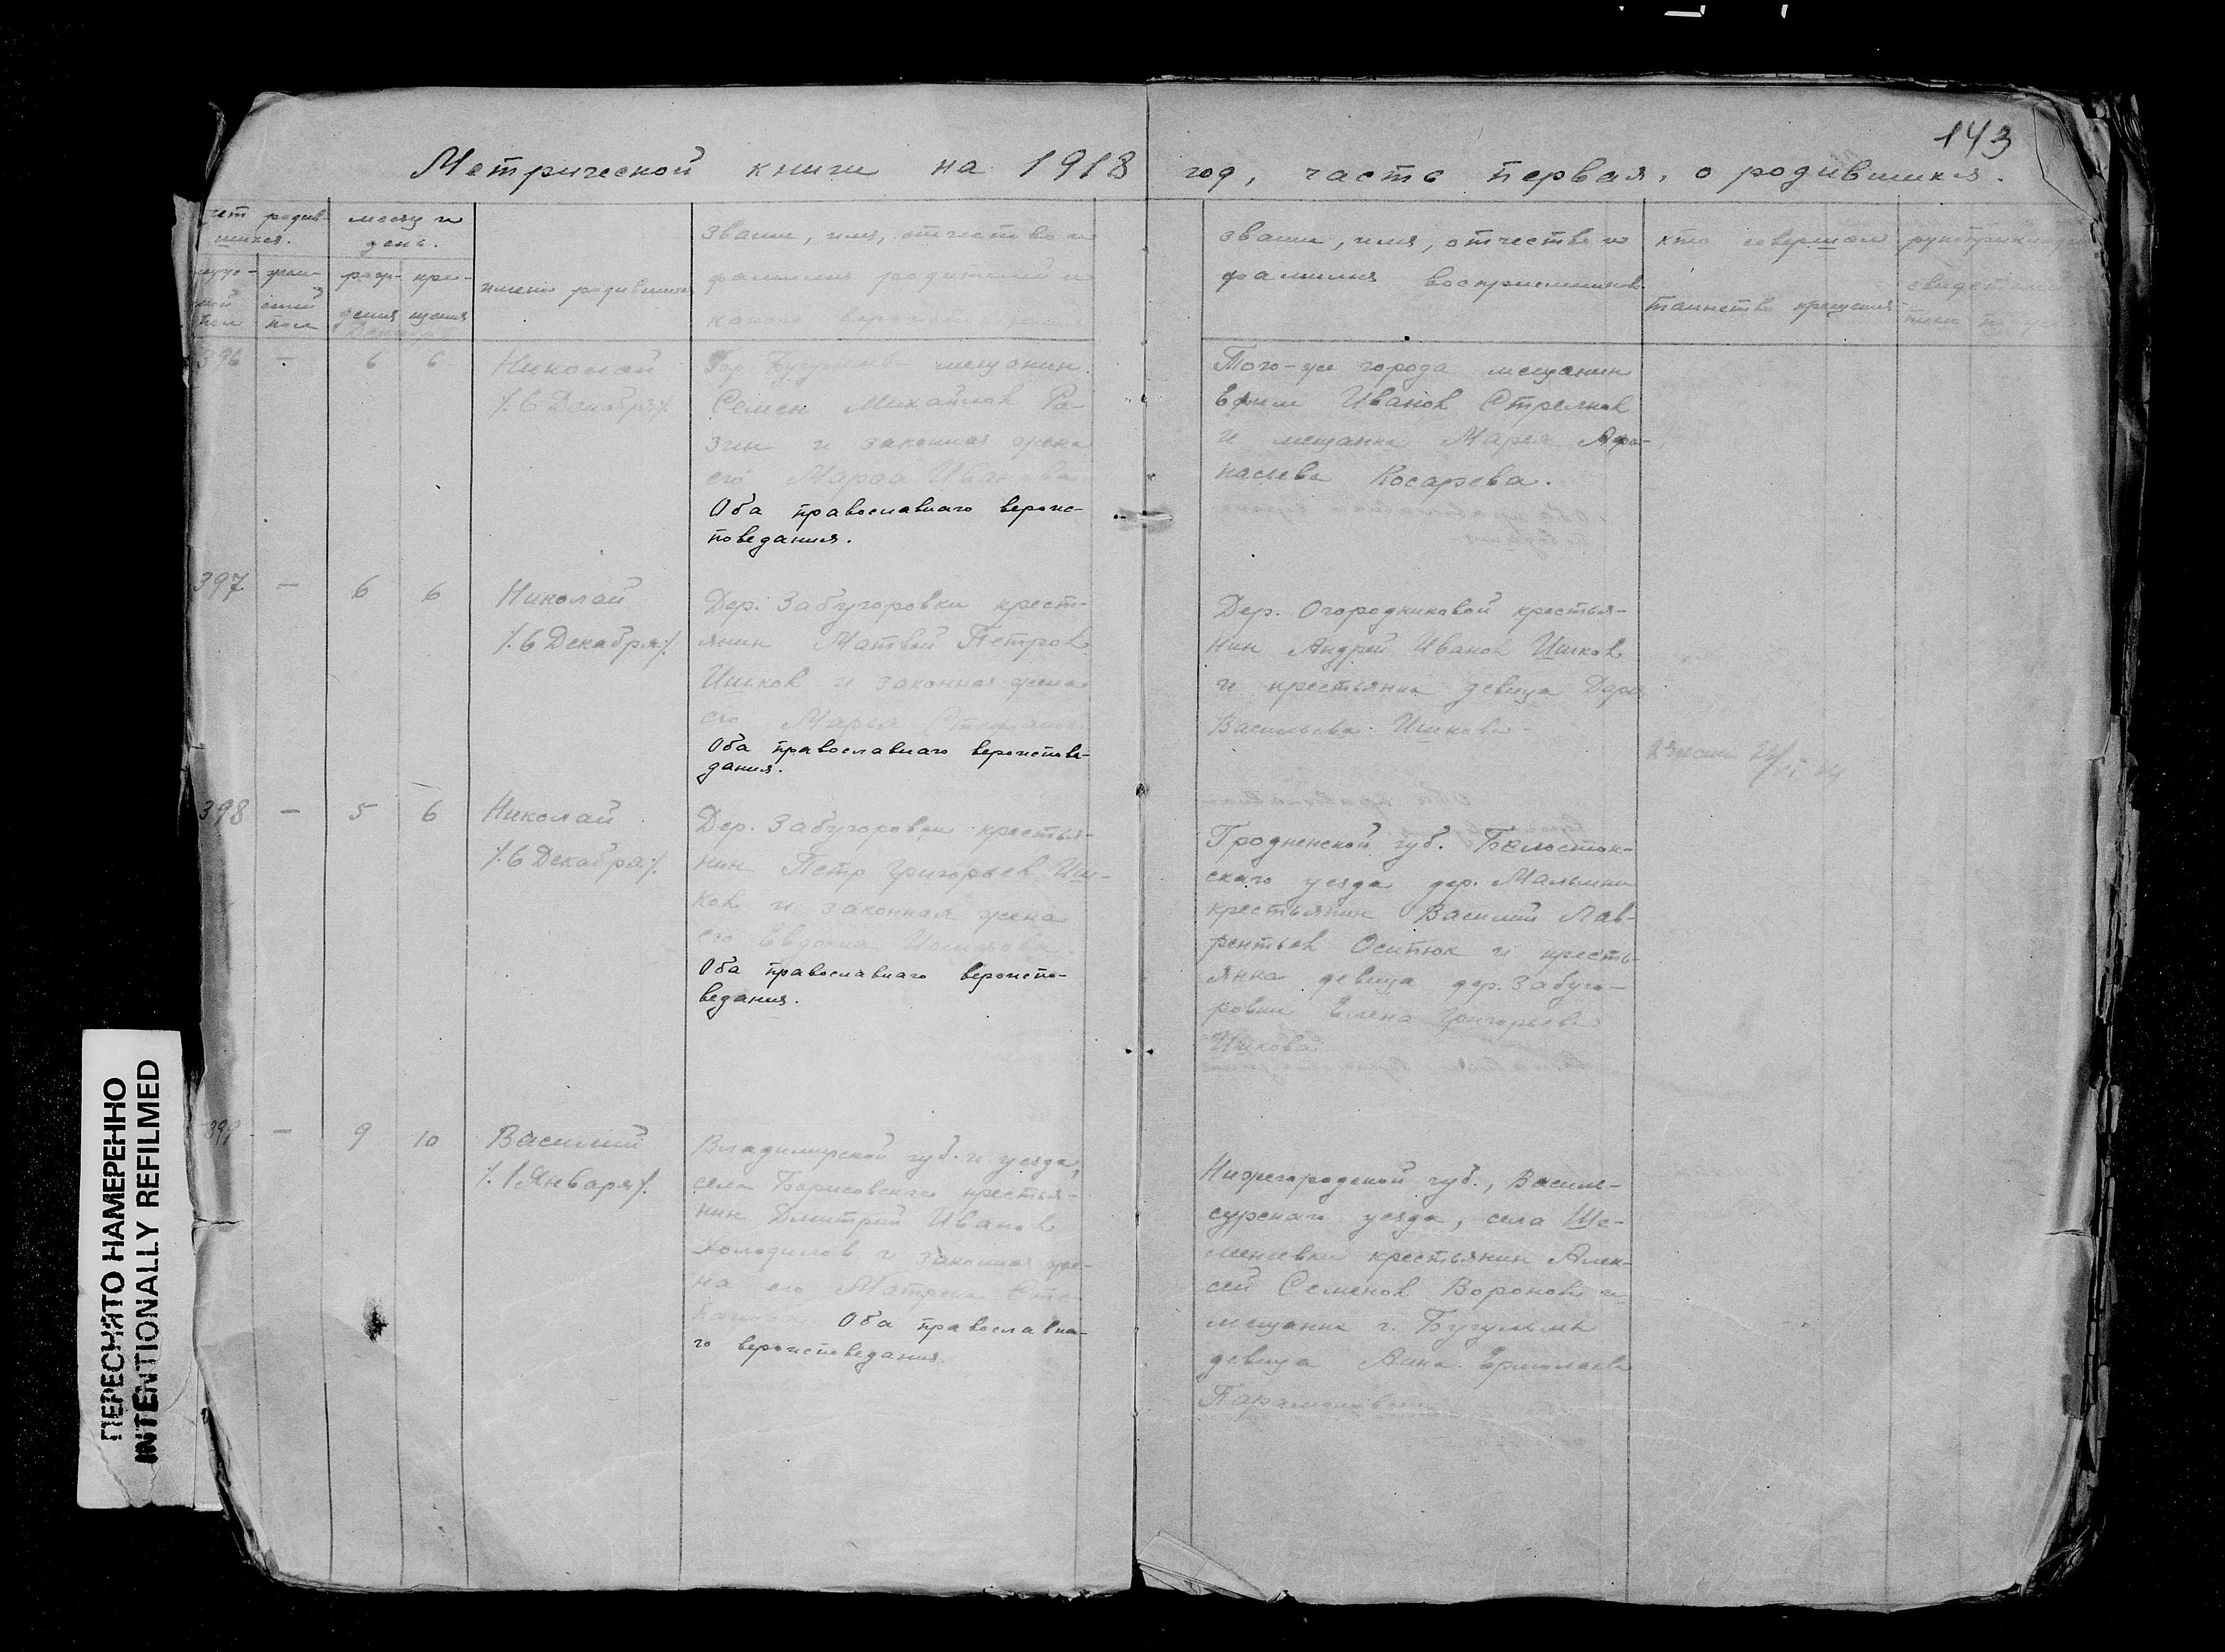 143
Метрической книги на 1918 год, часть первая, о родившихся.
счет родив-
шихся.
месяц и
день.
имена родившихся
звание, имя, отчество и
фамилия родителей и
какого
звание, имя, отчество и
фамилия восприемников.
кто совершал
таинство крещения
мужс-
кой
пол
жен-
ский
пол
рож-
дения
кре-
щения
Декабрь
396 — 6 6
Николай
/.6 Декабря./
Гор. Бугульмы мещанин
Семен Михайлов Ра-
зин и законная жена
его Марфа Иванова.
Оба православнаго вероис-
поведания.
Того-же города мещанин
Ефим Иванов Стрелков
и мещанка Мария Афа-
насьева Косарева.
397 — 6 6
Николай
/.6 Декабря./
Дер. Забугоровки крест-
янин Матвей Петров
Ишков и законная жена
его Марья Степанова
Оба православнаго вероиспове-
дания.
Дер. Огородниковой крестья-
нин Андрей Иванов Ишков
и крестьянка девица Дарья
Васильева Ишкова.
398 — 5 6
Николай
/.6 Декабря./
Дер. Забугоровки крестья-
нин Петр Григорьев Иш-
ков и законная жена
его Евдокия
Оба православнаго вероиспо-
ведания.
Гродненской губ. Белосток-
скаго уезда дер.
крестьянин Василий Лав-
рентьев Осипюк и кресть-
янка девица дер. Забуго-
ровки Елена Григорьева
Ишкова
399 — 9 10
Василий
/.1 Января./
Владимирской губ. и уезда,
села Борисовскаго крестья-
нин Дмитрий Иванов
Холодилов и законная же-
на его Матрена Сте-
панова. Оба православна-
го вероисповедания.
Нижегородской губ., Василь-
сурскаго уезда, села
крестьянин Алек-
сей Семенов Воронов и
мещанка г. Бугульмы
девица Анна Ермолаева
Парамонова.
ПЕРЕСНЯТО НАМЕРЕННО
INTENTIONALLY REFILMED